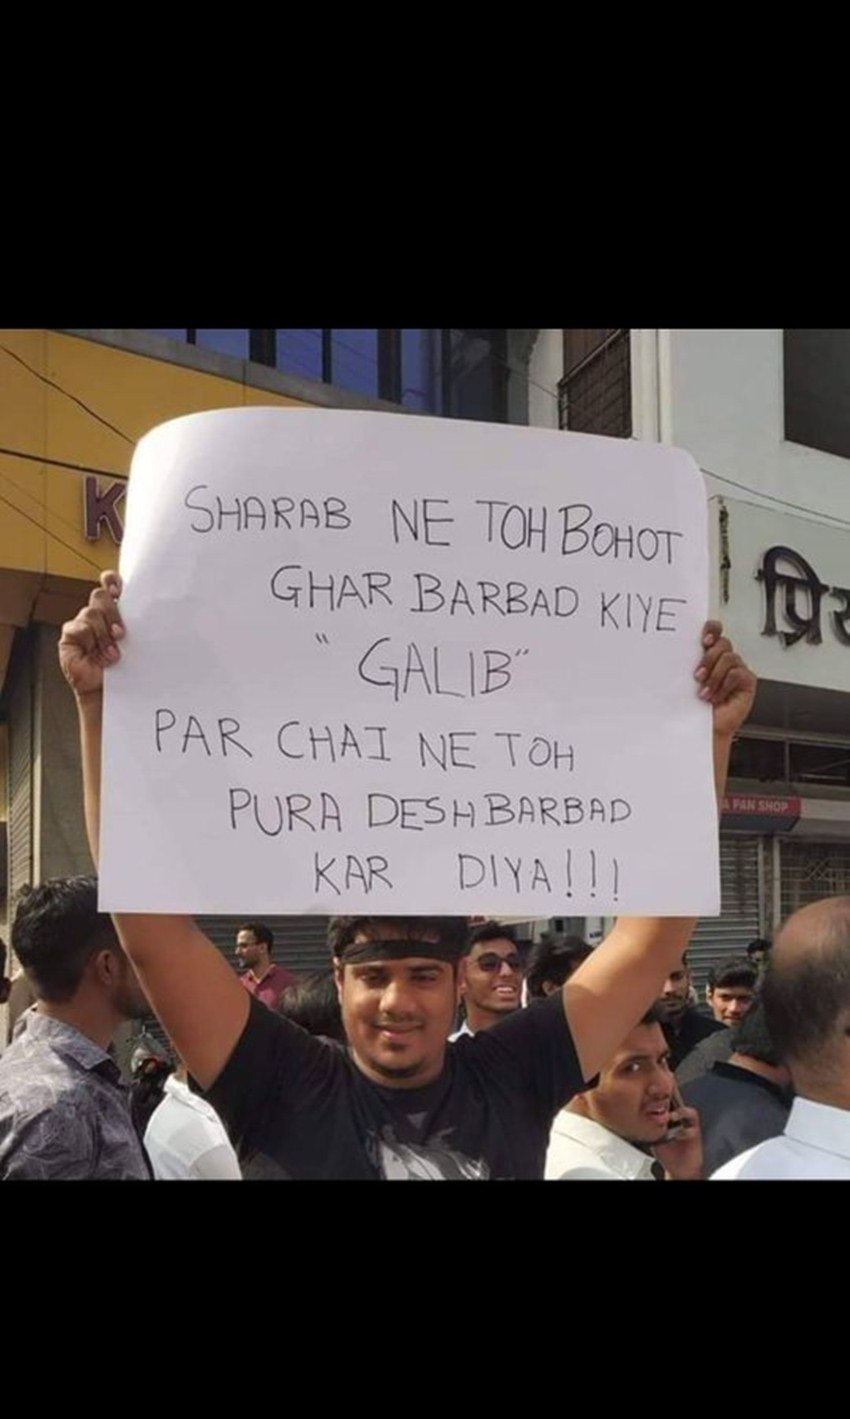 K
SHARAB NE TOH BOHOT
GHAR BARBAD KIYE
"GALIB"
PAR CHAI NE TOH
PURA DESH BARBAD
KAR DIYA!!!
A PAN SHOP